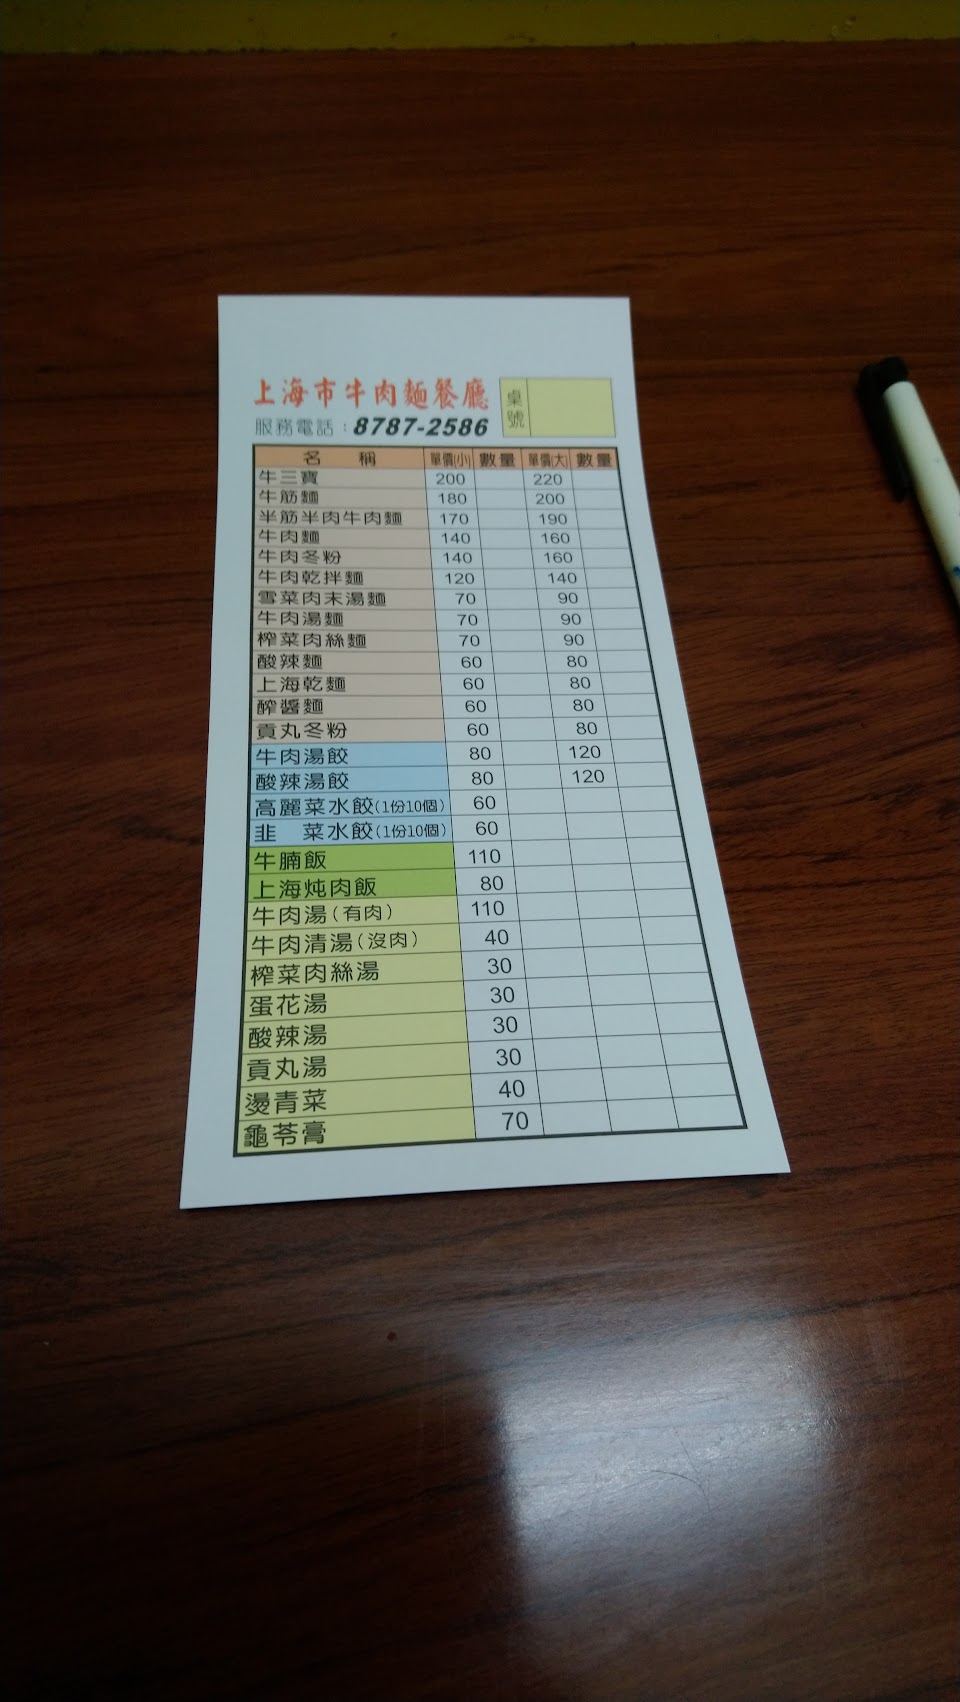 上海市牛肉麵餐廳
桌號
服務電話：8787-2586
名 稱 單價(小) 數量 單價(大) 數量
牛三寶 200 220
牛筋麵 180 200
半筋半肉牛肉麵 170 190
牛肉麵 140 160
牛肉冬粉 140 160
牛肉乾拌麵 120 140
雪菜肉末湯麵 70 90
牛肉湯麵 70 90
榨菜肉絲麵 70 90
酸辣麵 60 80
上海乾麵 60 80
醡醬麵 60 80
貢丸冬粉 60 80
牛肉湯餃 80 120
酸辣湯餃 80 120
高麗菜水餃(1份10個) 60
韭 菜水餃(1份10個) 60
牛腩飯 110
上海炖肉飯 80
牛肉湯(有肉) 110
牛肉清湯(沒肉) 40
榨菜肉絲湯 30
蛋花湯 30
酸辣湯 30
貢丸湯 30
燙青菜 40
龜苓膏 70